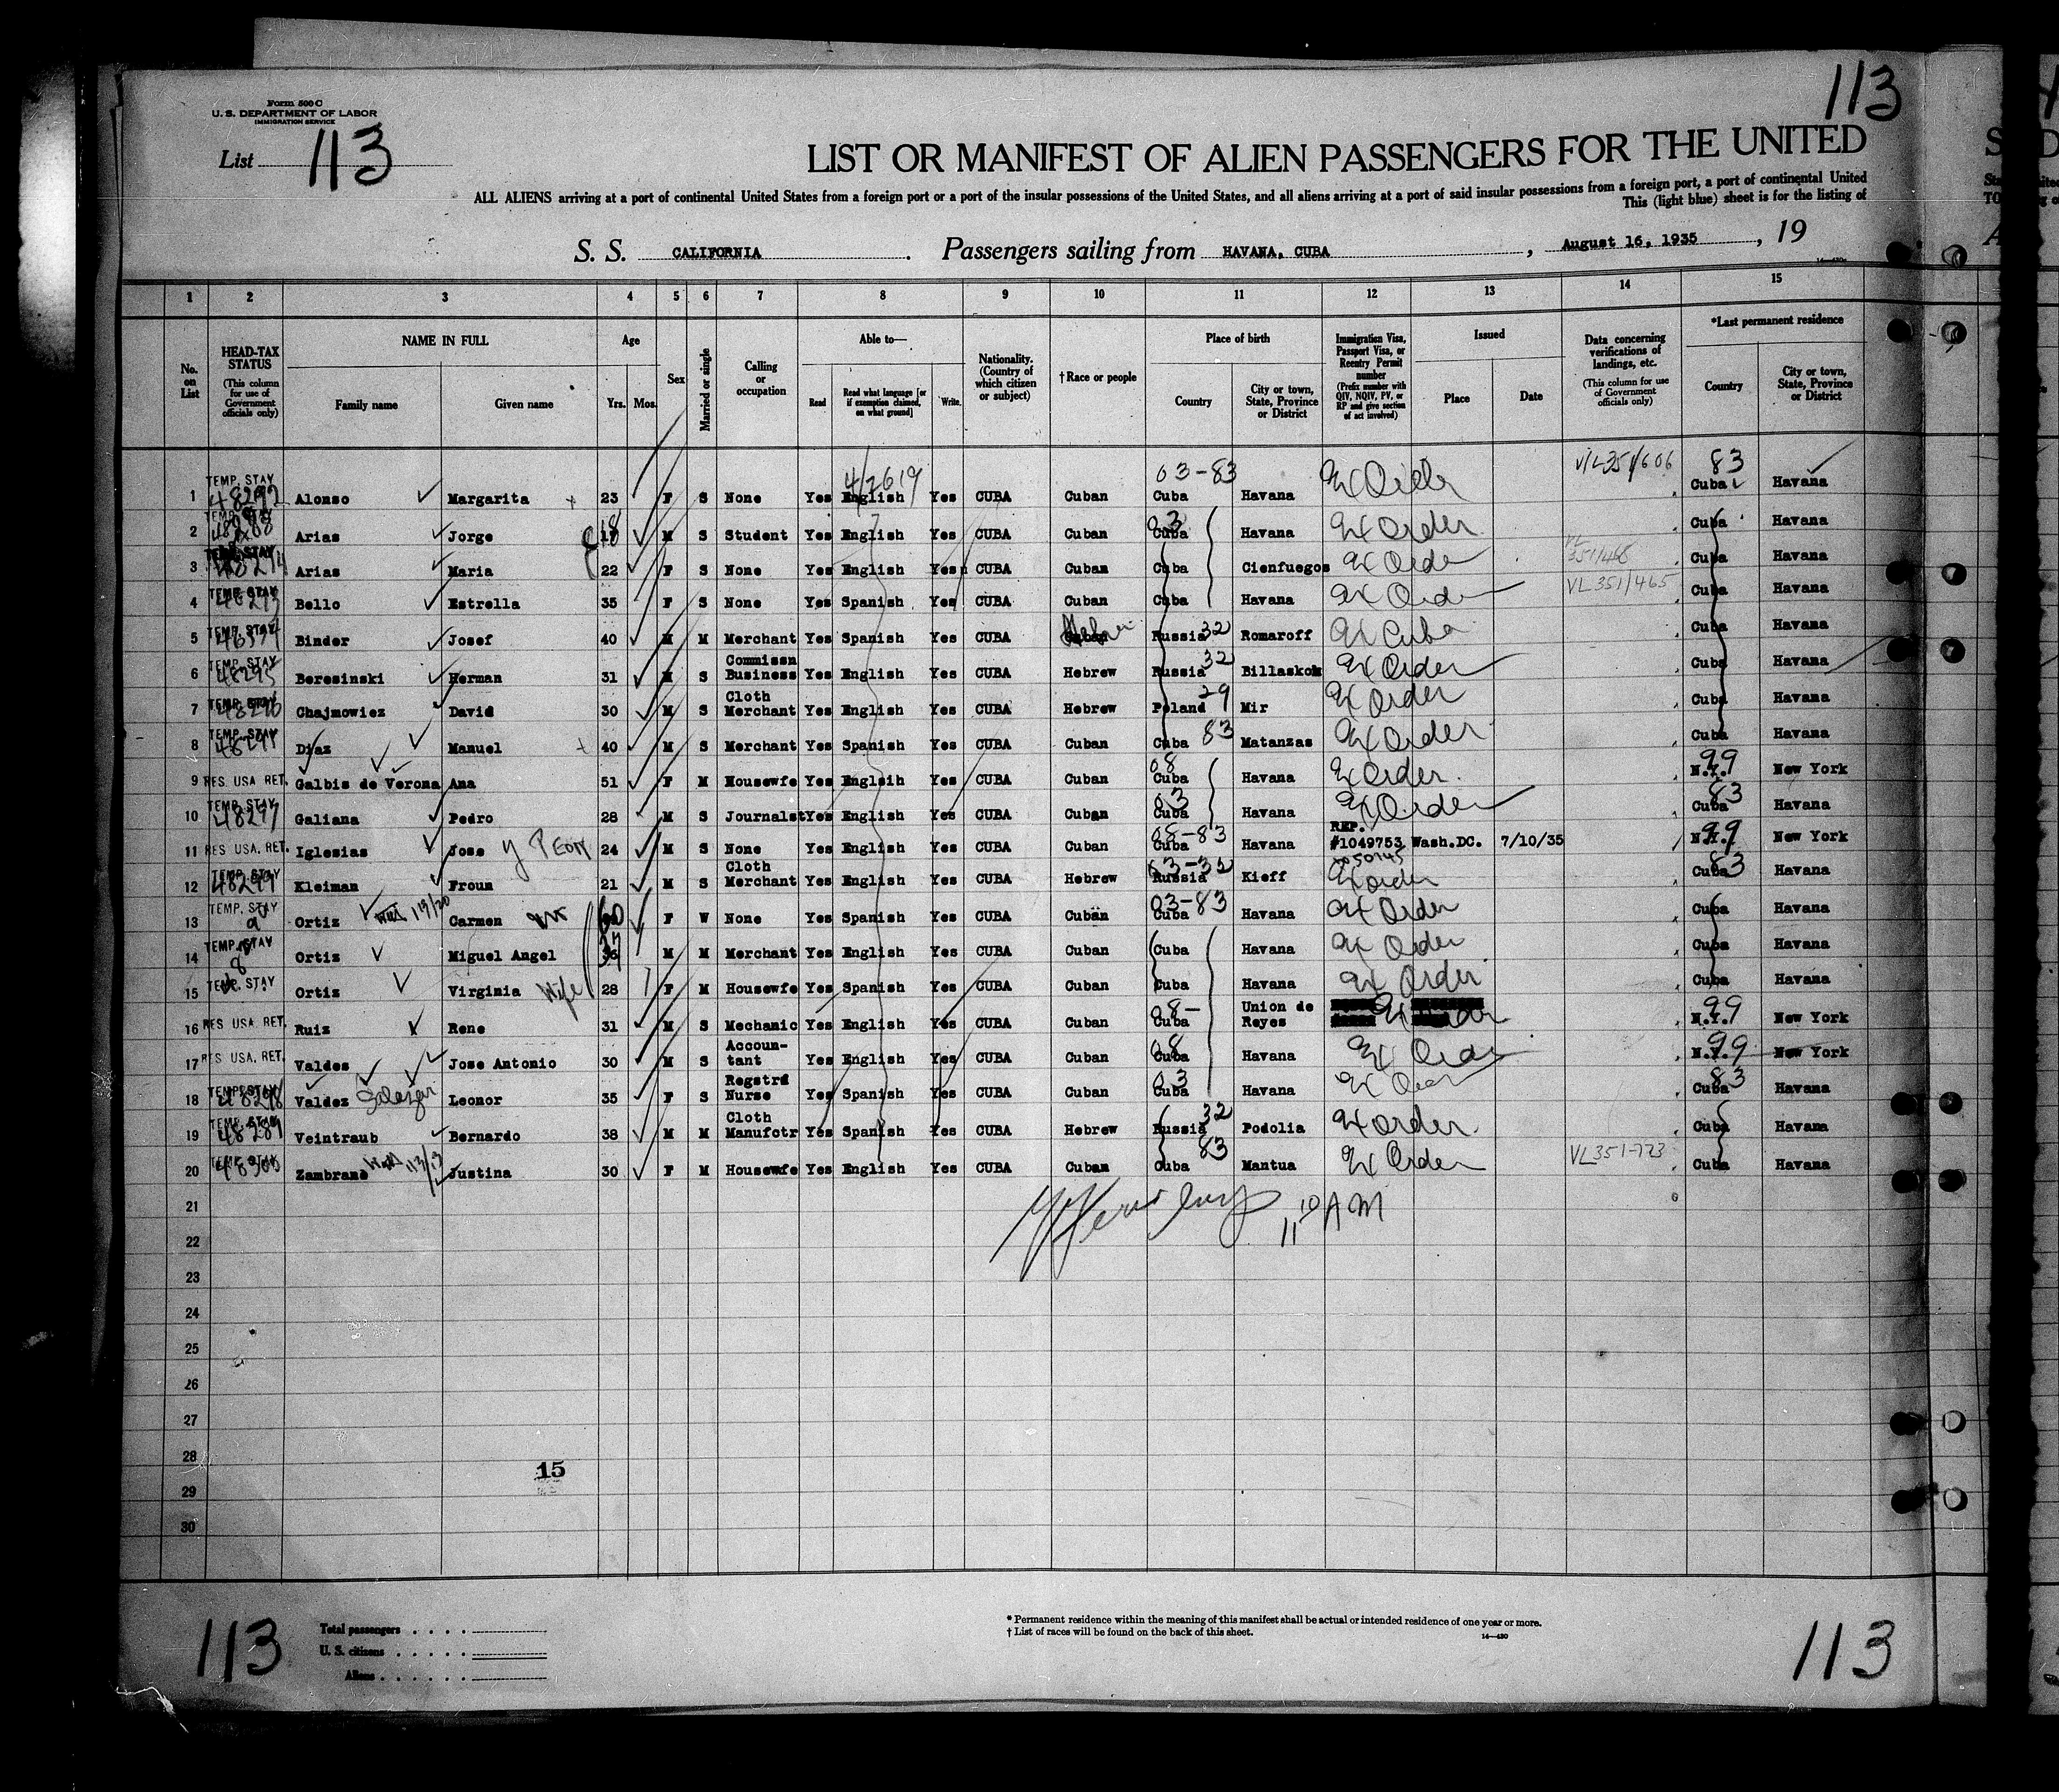 113
Form 500 C
U. S. DEPARTMENT OF LABOR
IMMIGRATION SERVICE
List 113
LIST OR MANIFEST OF ALIEN PASSENGERS FOR THE UNITED
ALL ALIENS arriving at a port of continental United States from a foreign port or a port of the insular possessions of the United States, and all aliens arriving at a port of said insular possessions from a foreign port, a port of continental United
This (light blue) sheet is for the listing of
S. S. CALIFORNIA. Passengers sailing from HAVANA, CUBA, August 16, 1935, 19
1 2 3 4 5 6 7 8 9 10 11 12 13 14 15
No. on List HEAD-TAX STATUS (This column for use of Government officials only) NAME IN FULL Family name Given name Age Yrs. Mos. Sex Married or single Calling or occupation Able to— Read Read what language [or if exemption claimed, on what ground] Write Nationality. (Country of which citizen or subject) † Race or people Place of birth Country City or town, State, Province or District Immigration Visa, Passport Visa, or Reentry Permit number (Prefix number with QIV, NQIV, PV, or RP and give section of act involved) Issued Place Date Data concerning verifications of landings, etc. (This column for use of Government officials only) *Last permanent residence Country City or town, State, Province or District
4/26 19 03-83 VL 351/606 83
1 TEMP. STAY 48292 Alonso Margarita 23 F S None Yes English Yes CUBA Cuban Cuba Havana Ex Order Cuba Havana
2 TEMP. STAY Arias Jorge 18 M S Student Yes English Yes CUBA Cuban 03 Cuba Havana Ex Order Cuba Havana
3 TEMP. STAY Arias Maria 22 F S None Yes English Yes CUBA Cuban Cuba Cienfuegos Ex Order Cuba Havana
4 TEMP. STAY Bello Estrella 35 F S None Yes Spanish Yes CUBA Cuban Cuba Havana Ex Order VL 351/465 Cuba Havana
5 TEMP. STAY Binder Josef 40 M M Merchant Yes Spanish Yes CUBA Hebrew Russia 32 Romaroff Ex Cuba Cuba Havana
6 TEMP. STAY 48295 Beresinski Herman 31 M S Commissn Business Yes English Yes CUBA Hebrew Russia 32 Billaskok Ex Order Cuba Havana
7 TEMP. STAY Chajmowiez David 30 M S Cloth Merchant Yes English Yes CUBA Hebrew Poland 29 Mir Ex Order Cuba Havana
8 TEMP. STAY Diaz Manuel 40 M S Merchant Yes Spanish Yes CUBA Cuban Cuba 83 Matanzas Ex Order Cuba Havana
9 RES USA RET. Galbis de Verona Ana 51 F M Housewfe Yes Englsih Yes CUBA Cuban 08 Cuba Havana Ex Order. 99 N.Y. New York
10 TEMP. STAY 48297 Galiana Pedro 28 M S Journalst Yes English Yes CUBA Cuban 03 Cuba Havana Ex Order 83 Cuba Havana
11 RES USA. RET. Iglesias Jose y Peon 24 M S None Yes English Yes CUBA Cuban 08-83 Cuba Havana REP. #1049753 Wash.DC. 7/10/35 99 N.Y. New York
12 TEMP. STAY Kleiman Froum 21 M S Cloth Merchant Yes English Yes CUBA Hebrew 03-32 Russia Kieff Ex order Cuba 83 Havana
13 TEMP. STAY Ortiz 113/20 Carmen 60 F W None Yes Spanish Yes CUBA Cuban 03-83 Cuba Havana Ex Order Cuba Havana
14 TEMP. STAY Ortiz Miguel Angel 37 M M Merchant Yes English Yes CUBA Cuban Cuba Havana Ex Order Cuba Havana
15 TEMP. STAY Ortiz Virginia Wife 28 F M Housewfe Yes Spanish Yes CUBA Cuban Cuba Havana Ex Order Cuba Havana
16 RES USA. RET. Ruiz Rene 31 M S Mechanic Yes English Yes CUBA Cuban 08- Cuba Union de Reyes 99 N.Y. New York
17 RES USA. RET. Valdes Jose Antonio 30 M S Accoun- tant Yes English Yes CUBA Cuban 08 Cuba Havana Ex Order 99 N.Y. New York
18 TEMP. STAY Valdez Salazar Leonor 35 F S Regstrd Nurse Yes Spanish Yes CUBA Cuban 03 Cuba Havana Ex Order 83 Cuba Havana
19 TEMP. STAY 48289 Veintraub Bernardo 38 M M Cloth Manufctr Yes Spanish Yes CUBA Hebrew Russia 32 Podolia Ex order. Cuba Havana
20 TEMP. STAY 48300 Zambrano 113/13 Justina 30 F M Housewfe Yes English Yes CUBA Cuban Cuba 83 Mantua Ex Order VL 351-773 Cuba Havana
21 11 10 AM
22
23
24
25
26
27
28
15
29
30
113
Total passengers
U. S. citizens
Aliens
* Permanent residence within the meaning of this manifest shall be actual or intended residence of one year or more.
† List of races will be found on the back of this sheet.
14—430
113